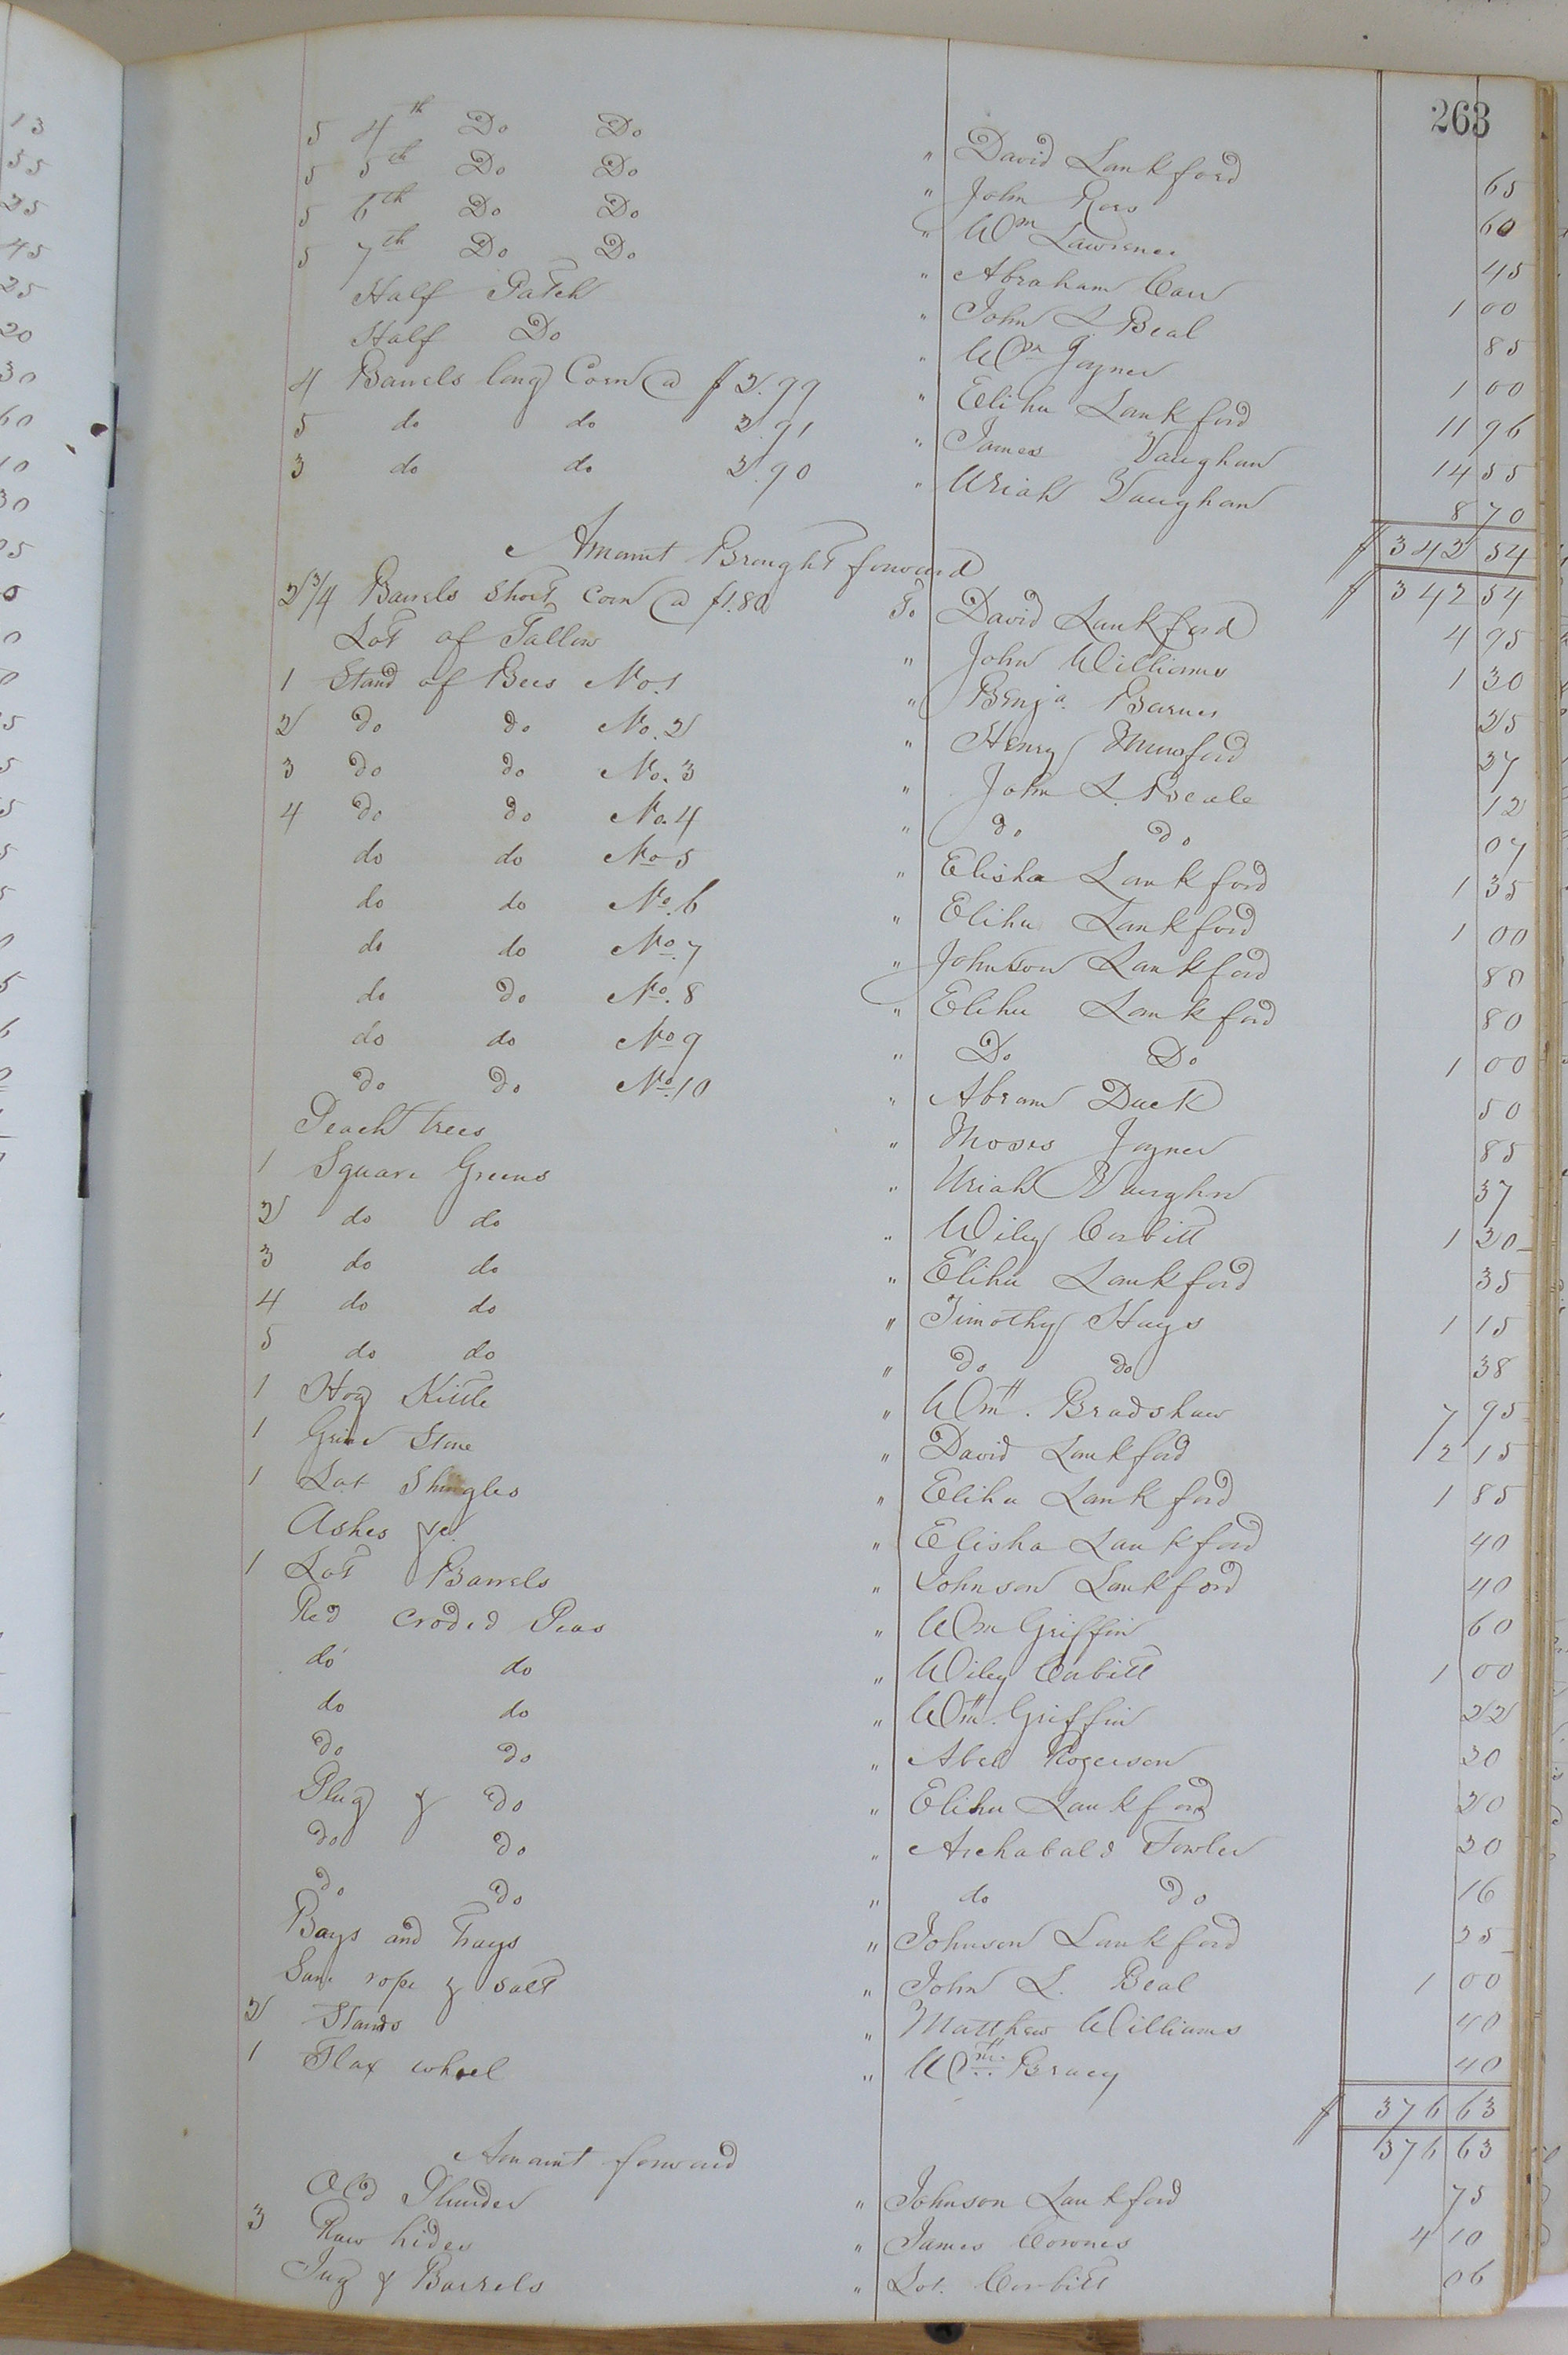 263
5 4th Do Do " David Lankford 65
5 5th Do Do " John Ross 60
5 6th Do Do " Wm Lawrence 45
5 7th Do Do " Abraham Carr 1 00
Half Patch " John L Beal 85
Half Do " Wm Joyner 1 00
4 Barrels long Corn @ $2.99 " Elihu Lankford 11 96
5 do do 2.91 " James Vaughan 14 55
3 do do 2.90 " Uriah Vaughan 8 70
$ 342 54
Amount Brought forward $ 342 54
2 3/4 Barrels Short Corn @ $1.80 To David Lankford 4 95
Lot of Tallow " John Williams 1 30
1 Stand of Bees No. 1 " Benja. Barnes 25
2 do do No. 2 " Henry Munford 37
3 do do No. 3 " John L. Beale 12
4 do do No. 4 " do do 07
do do No 5 " Elisha Lankford 1 35
do do No. 6 " Elihu Lankford 1 00
do do No. 7 " Johnson Lankford 80
do do No. 8 " Elihu Lankford 80
do do No 9 " Do Do 1 00
do do No. 10 " Abram Duck 50
Peach trees " Moses Joyner 85
1 Square Greens " Uriah Vaughn 37
2 do do " Wiley Corbitt 1 20
3 do do " Elihu Lankford 35
4 do do " Timothy Hays 1 15
5 do do " do do 38
1 Hog Kittle " Wm. Bradshaw 7 95
1 Grind Stone " David Lankford 2 15
1 Lot Shingles " Elihu Lankford 1 85
Ashes &c. " Elisha Lankford 40
1 Lot Barrels " Johnson Lankford 40
Red Croded Peas " Wm Griffin 60
do do " Wiley Corbitt 1 00
do do " Wm. Griffin 22
do do " Abel Rogerson 30
Plug & do " Elihu Lankford 20
do do " Archabald Fowler 30
do do " do do 16
Bags and Trays " Johnson Lankford 25
rope & Salt " John L. Beal 1 00
2 Stands " Matthew Williams 40
1 Flax wheel " Wm. Bracy 40
$ 376 63
Amount forward 376 63
Old Plunder " Johnson Lankford 75
3 Raw hides " James 4 10
Jug & Barrels " Lot. Corbitt 06